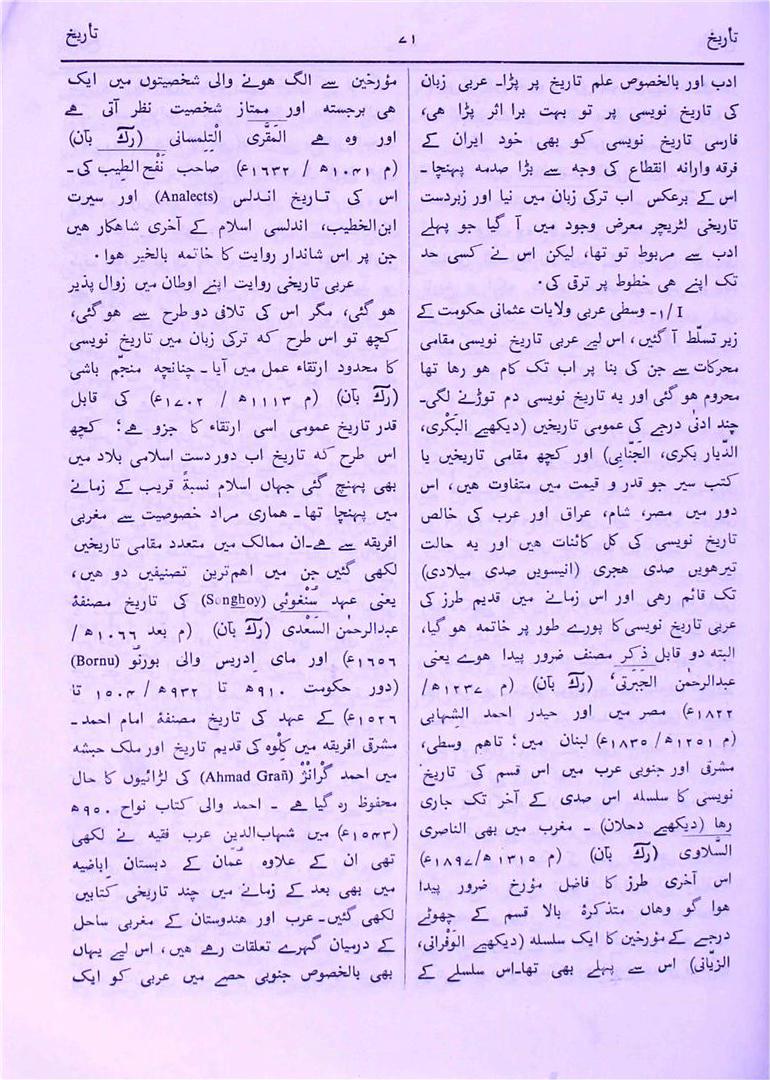 تأریخ ۷۱ تأریخ
ادب اور بالخصوص علم تاریخ پر پڑا۔ عربی زبان
کی تاریخ نویسی پر تو بہت برا اثر پڑا ھی،
فارسی تاریخ نویسی کو بھی خود ایران کے
فرقہ وارانہ انقطاع کی وجہ سے بڑا صدمہ پہنچا۔
اس کے برعکس اب ترکی زبان میں نیا اور زبردست
تاریخی لٹریچر معرض وجود میں آ گیا جو پہلے
ادب سے مربوط تو تھا، لیکن اس نے کسی حد
تک اپنے ھی خطوط پر ترقی کی۔
I/۱۔ وسطی عربی ولایات عثمانی حکومت کے
زیر تسلّط آ گئیں، اس لیے عربی تاریخ نویسی مقامی
محرکات سے جن کی بنا پر اب تک کام ھو رھا تھا
محروم ھو گئی اور یہ تاریخ نویسی دم توڑنے لگی۔
چند ادنیٰ درجے کی عمومی تاریخیں (دیکھیے البَکْری،
الدّیار بکری، الجَنّابی) اور کچھ مقامی تاریخیں یا
کتب سیر جو قدر و قیمت میں متفاوت ھیں، اس
دور میں مصر، شام، عراق اور عرب کی خالص
تاریخ نویسی کی کل کائنات ھیں اور یہ حالت
تیرھویں صدی ھجری (انیسویں صدی میلادی)
تک قائم رھی اور اس زمانے میں قدیم طرز کی
عربی تاریخ نویسی کا پورے طور پر خاتمہ ھو گیا،
البتہ دو قابل ذکر مصنف ضرور پیدا ھوے یعنی
عبدالرحمٰن الجَبَرتی، (رکّ بآن) (م ۱۲۳۷ھ/
۱۸۲۲ء) مصر میں اور حیدر احمد الشِہابی
(م ۱۲۵۱ھ/۱۸۳۵ء) لبنان میں؛ تاھم وسطی،
مشرقی اور جنوبی عرب میں اس قسم کی تاریخ
نویسی کا سلسلہ اس صدی کے آخر تک جاری
رھا (دیکھیے دحلان) ۔ مغرب میں بھی الناصری
السَّلاوی (رکّ بآن) (م ۱۳۱۵ھ/۱۸۹۷ء)
اس آخری طرز کا فاضل مؤرخ ضرور پیدا
ھوا گو وھاں متذکرۂ بالا قسم کے چھوٹے
درجے کے مؤرخین کا ایک سلسلہ (دیکھیے الوَفْرانی،
الزیّانی) اس سے پہلے بھی تھا۔اس سلسلے کے
مؤرخین سے الگ ھونے والی شخصیتوں میں ایک
ھی برجستہ اور ممتاز شخصیت نظر آتی ھے
اور وہ ھے المَقَّری التِلِمسانی (رکّ بآن)
(م ۱۰۴۱ھ / ۱۶۳۲ء) صاحب نَفْح الطِیب کی۔
اس کی تاریخ اندلس (Analects) اور سیرت
ابن الخطیب، اندلسی اسلام کے آخری شاھکار ھیں
جن پر اس شاندار روایت کا خاتمہ بالخیر ھوا۔
عربی تاریخی روایت اپنے اوطان میں زوال پذیر
ھو گئی، مگر اس کی تلافی دو طرح سے ھو گئی،
کچھ تو اس طرح کہ ترکی زبان میں تاریخ نویسی
کا محدود ارتقاء عمل میں آیا۔ چنانچہ منجّم باشی
(رکّ بآن) (م ۱۱۱۳ھ / ۱۷۰۲ء) کی قابل
قدر تاریخ عمومی اسی ارتقاء کا جزو ھے؛ کچھ
اس طرح کہ تاریخ اب دور دست اسلامی بلاد میں
بھی پہنچ گئی جہاں اسلام نسبةً قریب کے زمانے
میں پہنچا تھا۔ ھماری مراد خصوصیت سے مغربی
افریقہ سے ھے۔ان ممالک میں متعدد مقامی تاریخیں
لکھی گئیں جن میں اھم ترین تصنیفیں دو ھیں،
یعنی عہد سُنْغوئی (Songhoy) کی تاریخ مصنفۂ
عبدالرحمٰن السَعْدی (رکّ بآن) (م بعد ۱۰۶۶ھ/
۱۶۵۶ء) اور مای اِدریس والی بورنُو (Bornu)
(دور حکومت ۹۱۰ھ تا ۹۳۲ھ / ۱۵۰۴ تا
۱۵۲۶ء) کے عہد کی تاریخ مصنفۂ امام احمد۔
مشرقی افریقہ میں کِلْوہ کی قدیم تاریخ اور ملک حبشہ
میں احمد گرانْژ (Ahmad Grañ) کی لڑائیوں کا حال
محفوظ رہ گیا ھے ۔ احمد والی کتاب نواح ۹۵۰ھ
(۱۵۴۳ء) میں شہاب الدین عرب فقیہ نے لکھی
تھی ان کے علاوہ عُمان کے دبستان اِباضیہ
میں بھی بعد کے زمانے میں چند تاریخی کتابیں
لکھی گئیں۔ عرب اور ھندوستان کے مغربی ساحل
کے درمیان گہرے تعلقات رھے ھیں، اس لیے یہاں
بھی بالخصوص جنوبی حصے میں عربی کو ایک